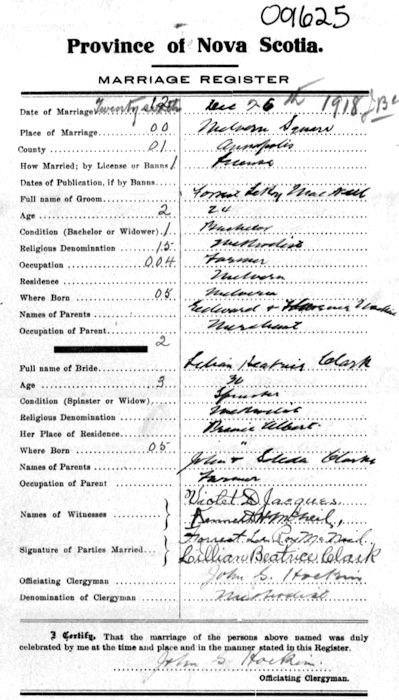 09625
Province of Nova Scotia.
MARRIAGE REGISTER
Date of Marriage Twenty sixth 12 Dec 26th 1918
Place of Marriage 00 Melvern Square
County 01 Annapolis
How Married; by License or Banns 1 License
Dates of Publication, if by Banns
Full name of Groom Forrest LeRoy MacNeil
Age 2 24
Condition (Bachelor or Widower) 1 Bachelor
Religious Denomination 15 Methodist
Occupation 004 Farmer
Residence Melvern
Where Born 05 Melvern
Names of Parents Edward &
Occupation of Parent Merchant
2
Full name of Bride Lilian Beatrice Clark
Age 3
Condition (Spinster or Widow) Spinster
Religious Denomination Methodist
Her Place of Residence Prince Albert
Where Born 05 "
Names of Parents John & Clarke
Occupation of Parent Farmer
Names of Witnesses Violet D Jacques
McNeil,
Signature of Parties Married Forrest Le Roy McNeil
Lillian Beatrice Clark
Officiating Clergyman John G. Hockin
Denomination of Clergyman Methodist
I Certify, That the marriage of the persons above named was duly
celebrated by me at the time and place and in the manner stated in this Register.
John G. Hockin
Officiating Clergyman.